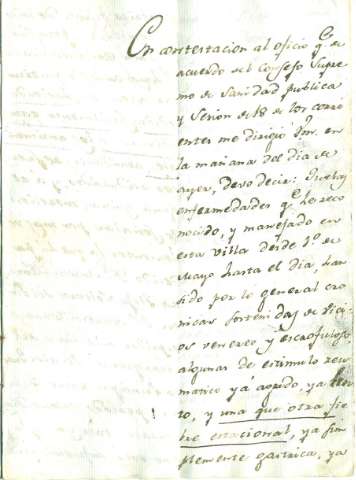 En contestacion al oficio q.e de
acuerdo del Consejo Supre
mo de Sanidad publica
y Sesion de 18 de los corri
entes me dirigió en
la mañana del dia de
ayer, devo decir: Que las
enfermedades q.e he reco
nocido, y manejado en
esta villa desde 1.º de
Mayo hasta el dia, han
sido por lo general cro
nicas sostenidas de vici
os venereo y escrofuloso,
algunas de estimulo reu
matico ya agudo, ya len
to, y una que otra fie
bre estacional, ya sim
plemente gastrica, ya